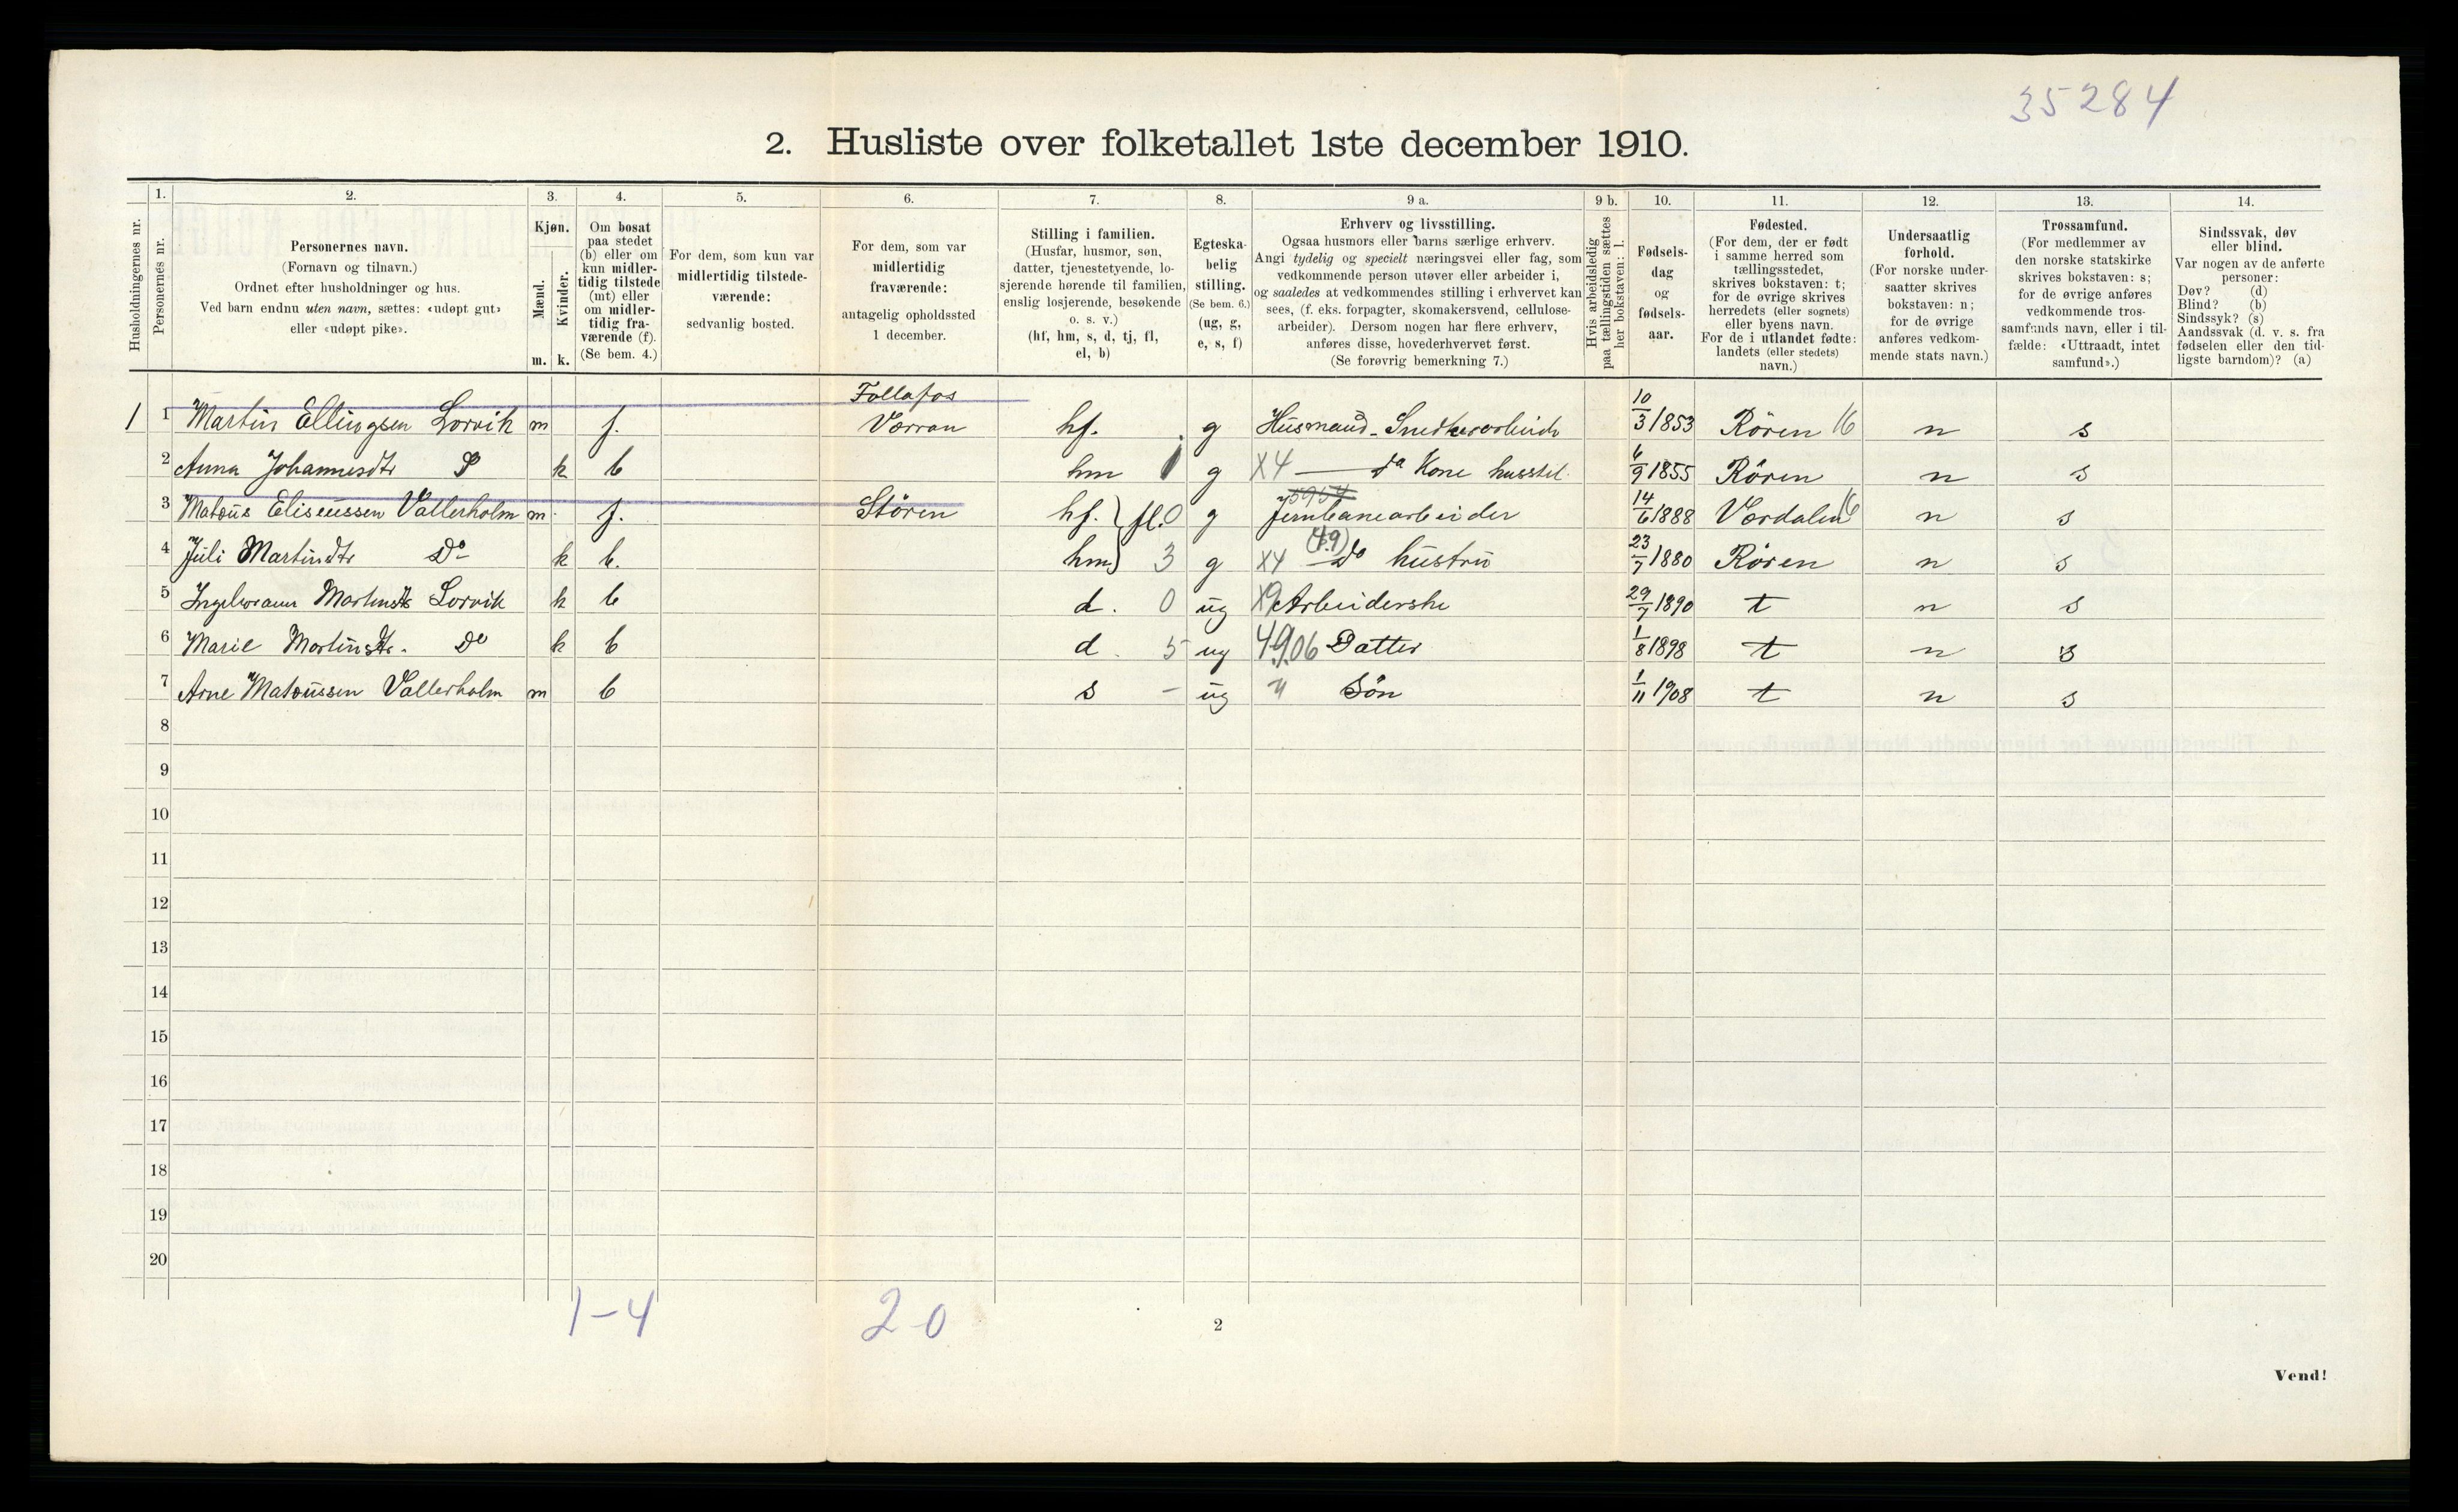 35284
2. Husliste over folketallet 1ste december 1910.
Husholdningernes nr.
1.
Personernes nr.
2.
Personernes navn.
(Fornavn og tilnavn.)
Ordnet efter husholdninger og hus.
Ved barn endnu uten navn, sættes: «udøpt gut»
eller «udøpt pike».
3.
Kjøn.
Mænd.
Kvinder.
m. k.
4.
Om bosat
paa stedet
(b) eller om
kun midler-
tidig tilstede
(mt) eller
om midler-
tidig fra-
værende (f).
(Se bem. 4.)
5.
For dem, som kun var
midlertidig tilstede-
værende:
sedvanlig bosted.
6.
For dem, som var
midlertidig
fraværende:
antagelig opholdssted
1 december.
7.
Stilling i familien.
(Husfar, husmor, søn,
datter, tjenestetyende, lo-
sjerende hørende til familien,
enslig losjerende, besøkende
o. s. v.)
(hf, hm, s, d, tj, fl,
el, b)
8.
Egteska-
belig
stilling.
(Se bem. 6.)
(ug, g,
e, s, f)
9 a.
Erhverv og livsstilling.
Ogsaa husmors eller barns særlige erhverv.
Angi tydelig og specielt næringsvei eller fag, som
vedkommende person utøver eller arbeider i,
og saaledes at vedkommendes stilling i erhvervet kan
sees, (f. eks. forpagter, skomakersvend, cellulose-
arbeider). Dersom nogen har flere erhverv,
anføres disse, hovederhvervet først.
(Se forøvrig bemerkning 7.)
9 b.
Hvis arbeidsledig
paa tællingstiden sættes
her bokstaven: l.
10.
Fødsels-
dag
og
fødsels-
aar.
11.
Fødested.
(For dem, der er født
i samme herred som
tællingsstedet,
skrives bokstaven: t;
for de øvrige skrives
herredets (eller sognets)
eller byens navn.
For de i utlandet fødte:
landets (eller stedets)
navn.)
12.
Undersaatlig
forhold.
(For norske under-
saatter skrives
bokstaven: n;
for de øvrige
anføres vedkom-
mende stats navn.)
13.
Trossamfund.
(For medlemmer av
den norske statskirke
skrives bokstaven: s;
for de øvrige anføres
vedkommende tros-
samfunds navn, eller i til-
fælde: «Uttraadt, intet
samfund».)
14.
Sindssvak, døv
eller blind.
Var nogen av de anførte
personer:
Døv? (d)
Blind? (b)
Sindssyk? (s)
Aandssvak (d. v. s. fra
fødselen eller den tid-
ligste barndom)? (a)
Follafos
1 1 Martin Ellingsen Lorvik m f. Værran hf. g Husmand - Snedkerarbeide 10/3 1853 Røren 16 n s
2 Anna Johannesdtr k b hm 1 g X4 — do Kone husstel. 6/9 1855 Røren n s
3 Matæus Eliseussen Vallerholm m f. Støren hf. fl. 0 g Jernbanearbeider 14/6 1888 Værdalen 16 n s
4 Juli Martindtr Do k b. hm 3 g X4 (4.9) Do hustru 23/7 1880 Røren n s
5 Ingeborganna Martinsdtr Lorvik k b d. 0 ug X9 Arbeiderske 29/7 1890 t n s
6 Marie Martinsdtr. Do k b d. 5 ug 4.9.06 Datter 1/8 1898 t n s
7 Arne Matæussen Vallerholm m b s - ug " Søn 1/11 1908 t n s
8
9
10
11
12
13
14
15
16
17
18
19
20
1-4 2-0
2
Vend!